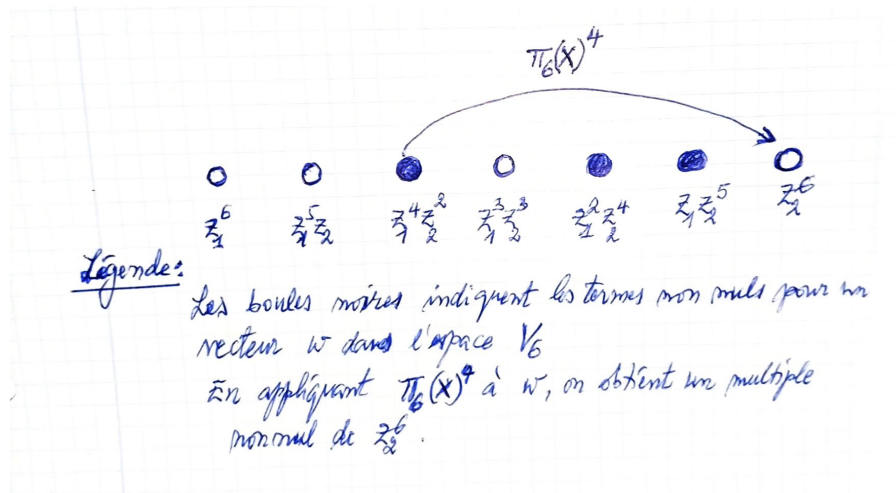 π₆(X)⁴
z₁⁶ z₁⁵z₂ z₁⁴z₂² z₁³z₂³ z₁²z₂⁴ z₁z₂⁵ z₂⁶
Légende:
Les boules noires indiquent les termes non nuls pour un
vecteur w dans l'espace V₆
En appliquant π₆(X)⁴ à w, on obtient un multiple
non nul de z₂⁶.